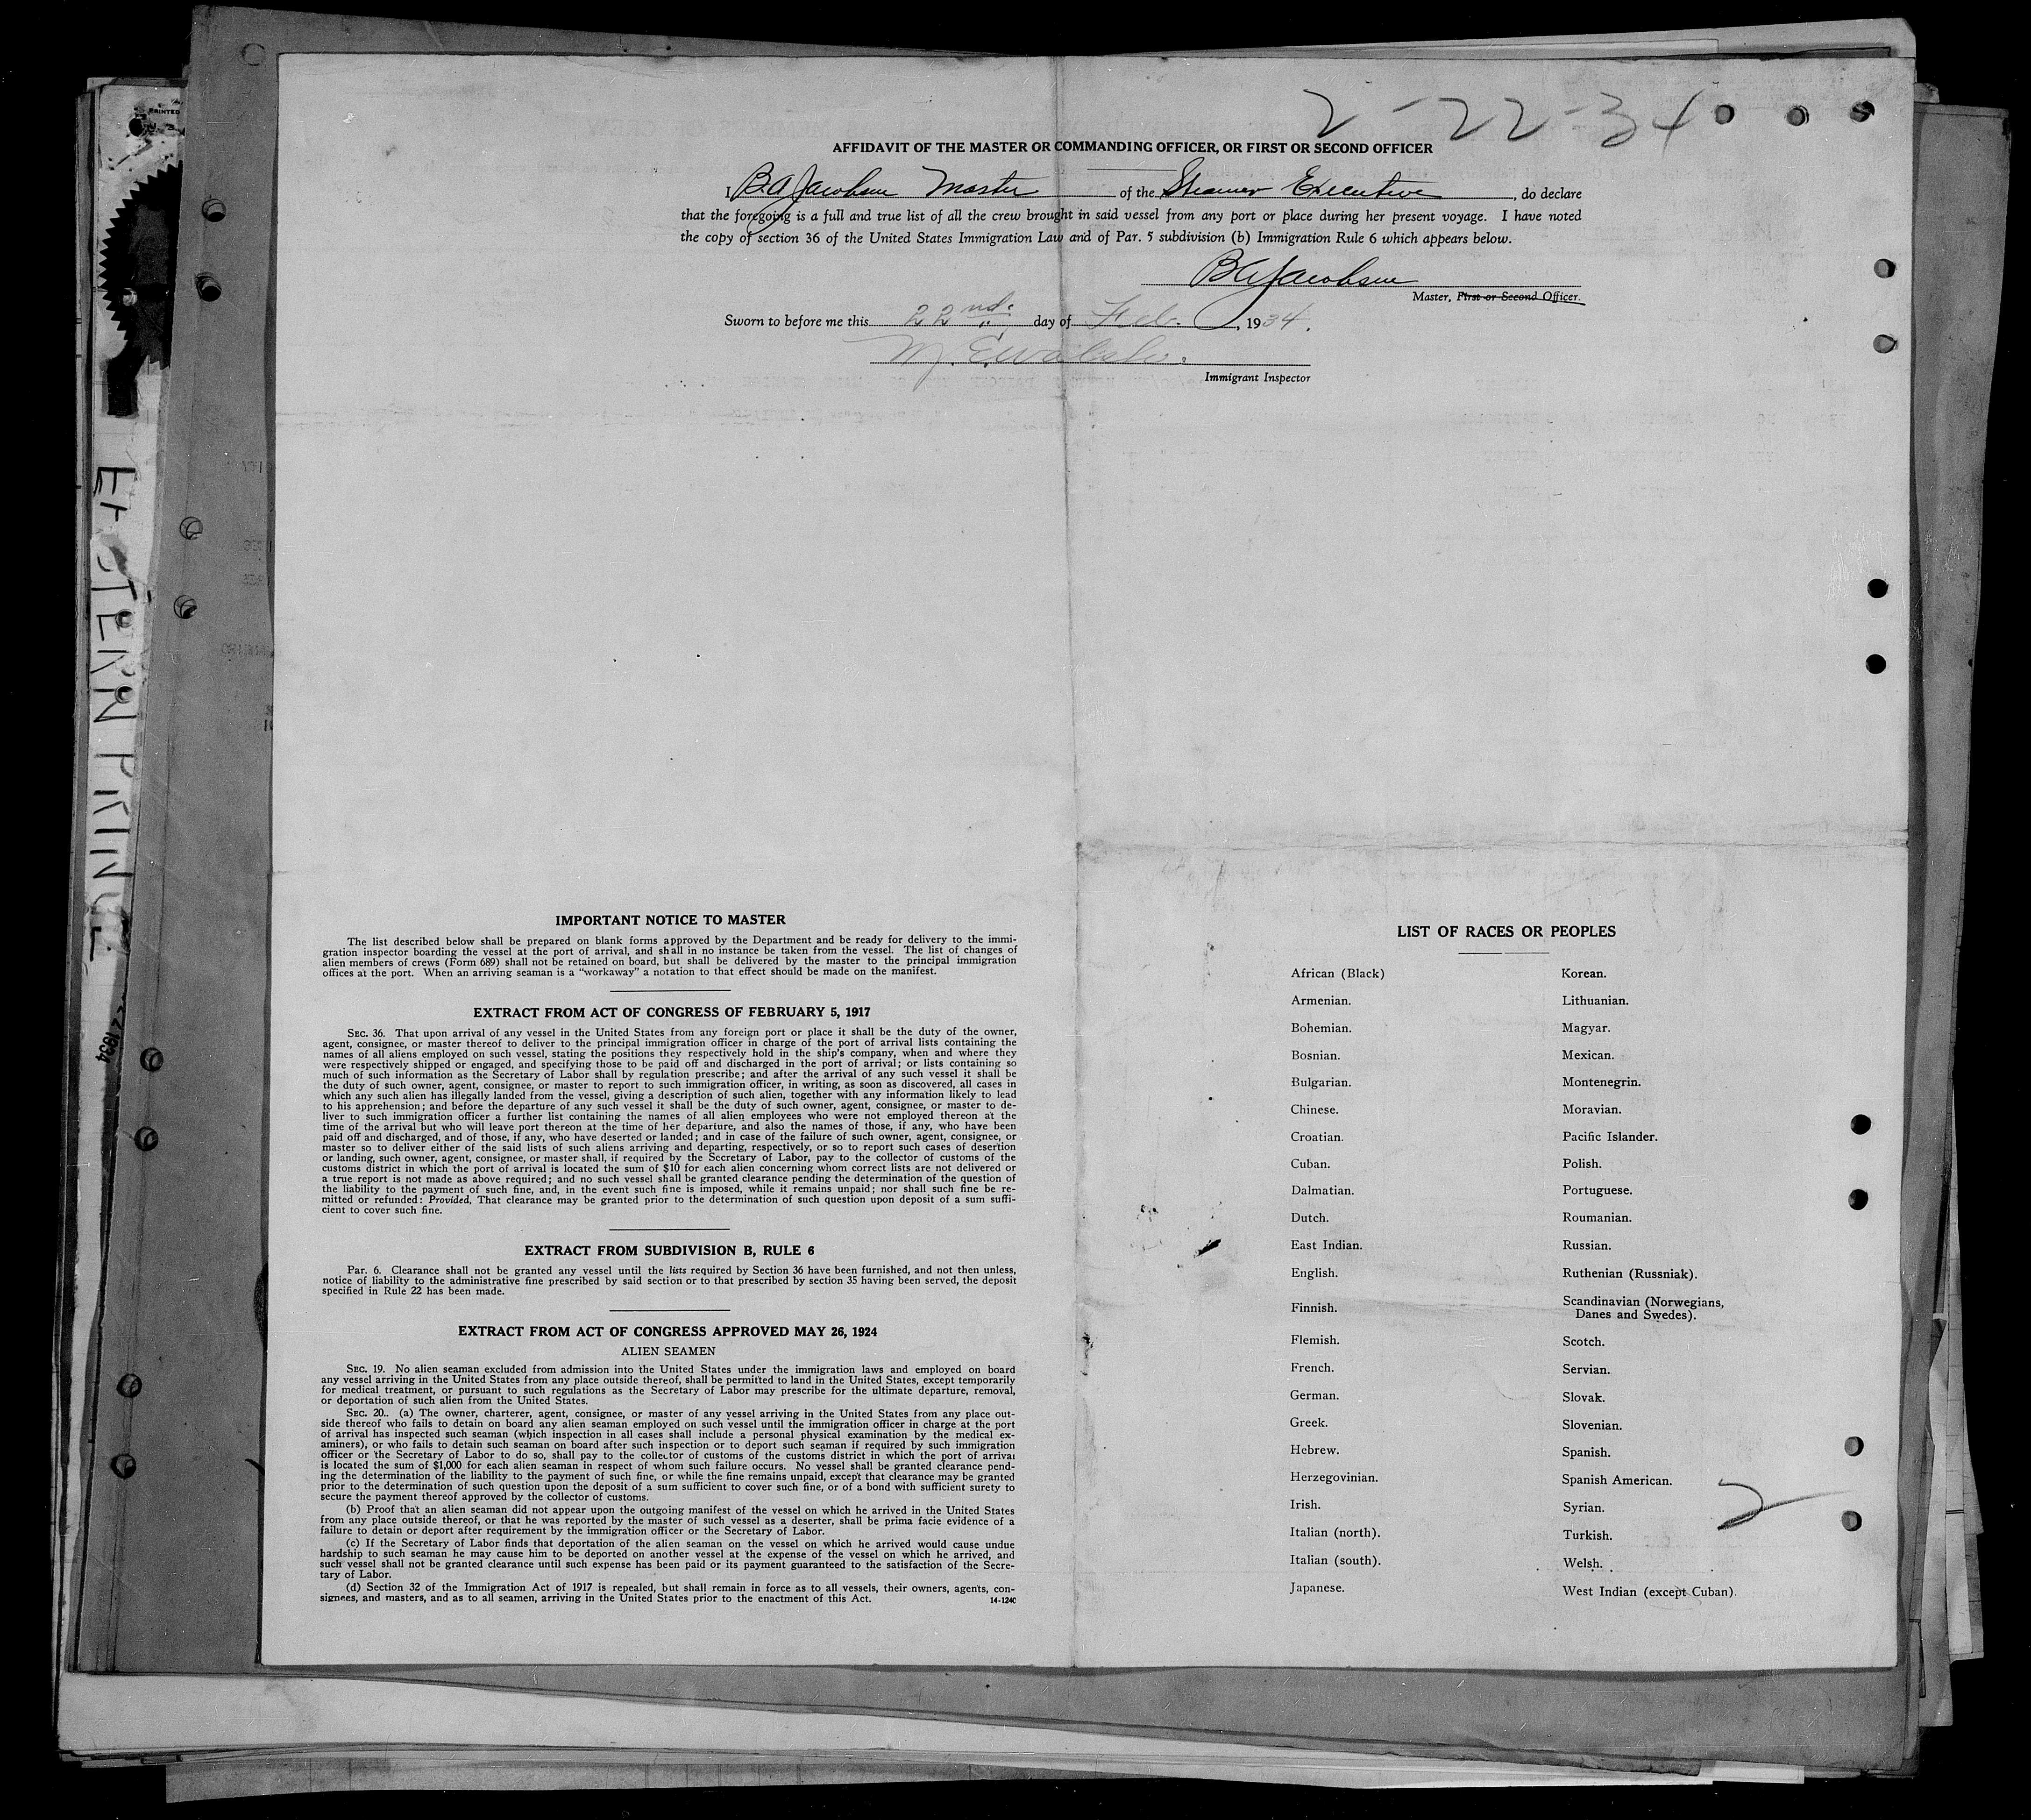 2-22-34
AFFIDAVIT OF THE MASTER OR COMMANDING OFFICER, OR FIRST OR SECOND OFFICER
I B.A. Jacobsen Master of the Steamer Executive, do declare
that the foregoing is a full and true list of all the crew brought in said vessel from any port or place during her present voyage. I have noted
the copy of section 36 of the United States Immigration Law and of Par. 5 subdivision (b) Immigration Rule 6 which appears below.
B A Jacobsen
Master, First or Second Officer.
Sworn to before me this 22nd. day of Feb., 1934.
Immigrant Inspector
EASTERN PRINCE
PRINTED
1934
IMPORTANT NOTICE TO MASTER
The list described below shall be prepared on blank forms approved by the Department and be ready for delivery to the immi-
gration inspector boarding the vessel at the port of arrival, and shall in no instance be taken from the vessel. The list of changes of
alien members of crews (Form 689) shall not be retained on board, but shall be delivered by the master to the principal immigration
offices at the port. When an arriving seaman is a "workaway" a notation to that effect should be made on the manifest.
EXTRACT FROM ACT OF CONGRESS OF FEBRUARY 5, 1917
SEC. 36. That upon arrival of any vessel in the United States from any foreign port or place it shall be the duty of the owner,
agent, consignee, or master thereof to deliver to the principal immigration officer in charge of the port of arrival lists containing the
names of all aliens employed on such vessel, stating the positions they respectively hold in the ship's company, when and where they
were respectively shipped or engaged, and specifying those to be paid off and discharged in the port of arrival; or lists containing so
much of such information as the Secretary of Labor shall by regulation prescribe; and after the arrival of any such vessel it shall be
the duty of such owner, agent, consignee, or master to report to such immigration officer, in writing, as soon as discovered, all cases in
which any such alien has illegally landed from the vessel, giving a description of such alien, together with any information likely to lead
to his apprehension; and before the departure of any such vessel it shall be the duty of such owner, agent, consignee, or master to de-
liver to such immigration officer a further list containing the names of all alien employees who were not employed thereon at the
time of the arrival but who will leave port thereon at the time of her departure, and also the names of those, if any, who have been
paid off and discharged, and of those, if any, who have deserted or landed; and in case of the failure of such owner, agent, consignee, or
master so to deliver either of the said lists of such aliens arriving and departing, respectively, or so to report such cases of desertion
or landing, such owner, agent, consignee, or master shall, if required by the Secretary of Labor, pay to the collector of customs of the
customs district in which the port of arrival is located the sum of $10 for each alien concerning whom correct lists are not delivered or
a true report is not made as above required; and no such vessel shall be granted clearance pending the determination of the question of
the liability to the payment of such fine, and, in the event such fine is imposed, while it remains unpaid; nor shall such fine be re-
mitted or refunded: Provided, That clearance may be granted prior to the determination of such question upon deposit of a sum suffi-
cient to cover such fine.
EXTRACT FROM SUBDIVISION B, RULE 6
Par. 6. Clearance shall not be granted any vessel until the lists required by Section 36 have been furnished, and not then unless,
notice of liability to the administrative fine prescribed by said section or to that prescribed by section 35 having been served, the deposit
specified in Rule 22 has been made.
EXTRACT FROM ACT OF CONGRESS APPROVED MAY 26, 1924
ALIEN SEAMEN
SEC. 19. No alien seaman excluded from admission into the United States under the immigration laws and employed on board
any vessel arriving in the United States from any place outside thereof, shall be permitted to land in the United States, except temporarily
for medical treatment, or pursuant to such regulations as the Secretary of Labor may prescribe for the ultimate departure, removal,
or deportation of such alien from the United States.
SEC. 20.. (a) The owner, charterer, agent, consignee, or master of any vessel arriving in the United States from any place out-
side thereof who fails to detain on board any alien seaman employed on such vessel until the immigration officer in charge at the port
of arrival has inspected such seaman (which inspection in all cases shall include a personal physical examination by the medical ex-
aminers), or who fails to detain such seaman on board after such inspection or to deport such seaman if required by such immigration
officer or the Secretary of Labor to do so, shall pay to the collector of customs of the customs district in which the port of arrival
is located the sum of $1,000 for each alien seaman in respect of whom such failure occurs. No vessel shall be granted clearance pend-
ing the determination of the liability to the payment of such fine, or while the fine remains unpaid, except that clearance may be granted
prior to the determination of such question upon the deposit of a sum sufficient to cover such fine, or of a bond with sufficient surety to
secure the payment thereof approved by the collector of customs.
(b) Proof that an alien seaman did not appear upon the outgoing manifest of the vessel on which he arrived in the United States
from any place outside thereof, or that he was reported by the master of such vessel as a deserter, shall be prima facie evidence of a
failure to detain or deport after requirement by the immigration officer or the Secretary of Labor.
(c) If the Secretary of Labor finds that deportation of the alien seaman on the vessel on which he arrived would cause undue
hardship to such seaman he may cause him to be deported on another vessel at the expense of the vessel on which he arrived, and
such vessel shall not be granted clearance until such expense has been paid or its payment guaranteed to the satisfaction of the Secre-
tary of Labor.
(d) Section 32 of the Immigration Act of 1917 is repealed, but shall remain in force as to all vessels, their owners, agents, con-
signees, and masters, and as to all seamen, arriving in the United States prior to the enactment of this Act.
14-1240
LIST OF RACES OR PEOPLES
African (Black)
Armenian.
Bohemian.
Bosnian.
Bulgarian.
Chinese.
Croatian.
Cuban.
Dalmatian.
Dutch.
East Indian.
English.
Finnish.
Flemish.
French.
German.
Greek.
Hebrew.
Herzegovinian.
Irish.
Italian (north).
Italian (south).
Japanese.
Korean.
Lithuanian.
Magyar.
Mexican.
Montenegrin.
Moravian.
Pacific Islander.
Polish.
Portuguese.
Roumanian.
Russian.
Ruthenian (Russniak).
Scandinavian (Norwegians,
Danes and Swedes).
Scotch.
Servian.
Slovak.
Slovenian.
Spanish.
Spanish American.
Syrian.
Turkish.
Welsh.
West Indian (except Cuban).
2